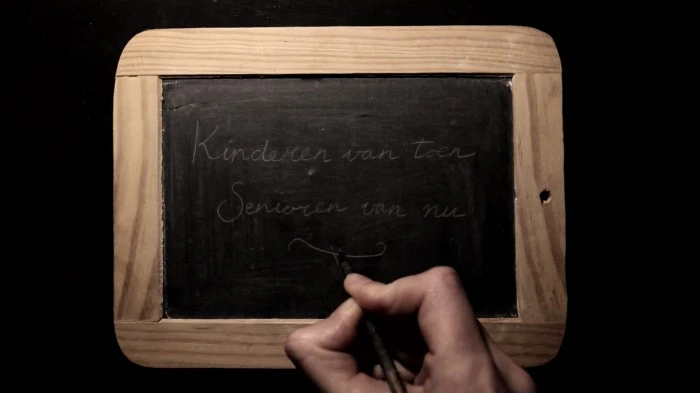 Kinderen van toen
Senioren van nu